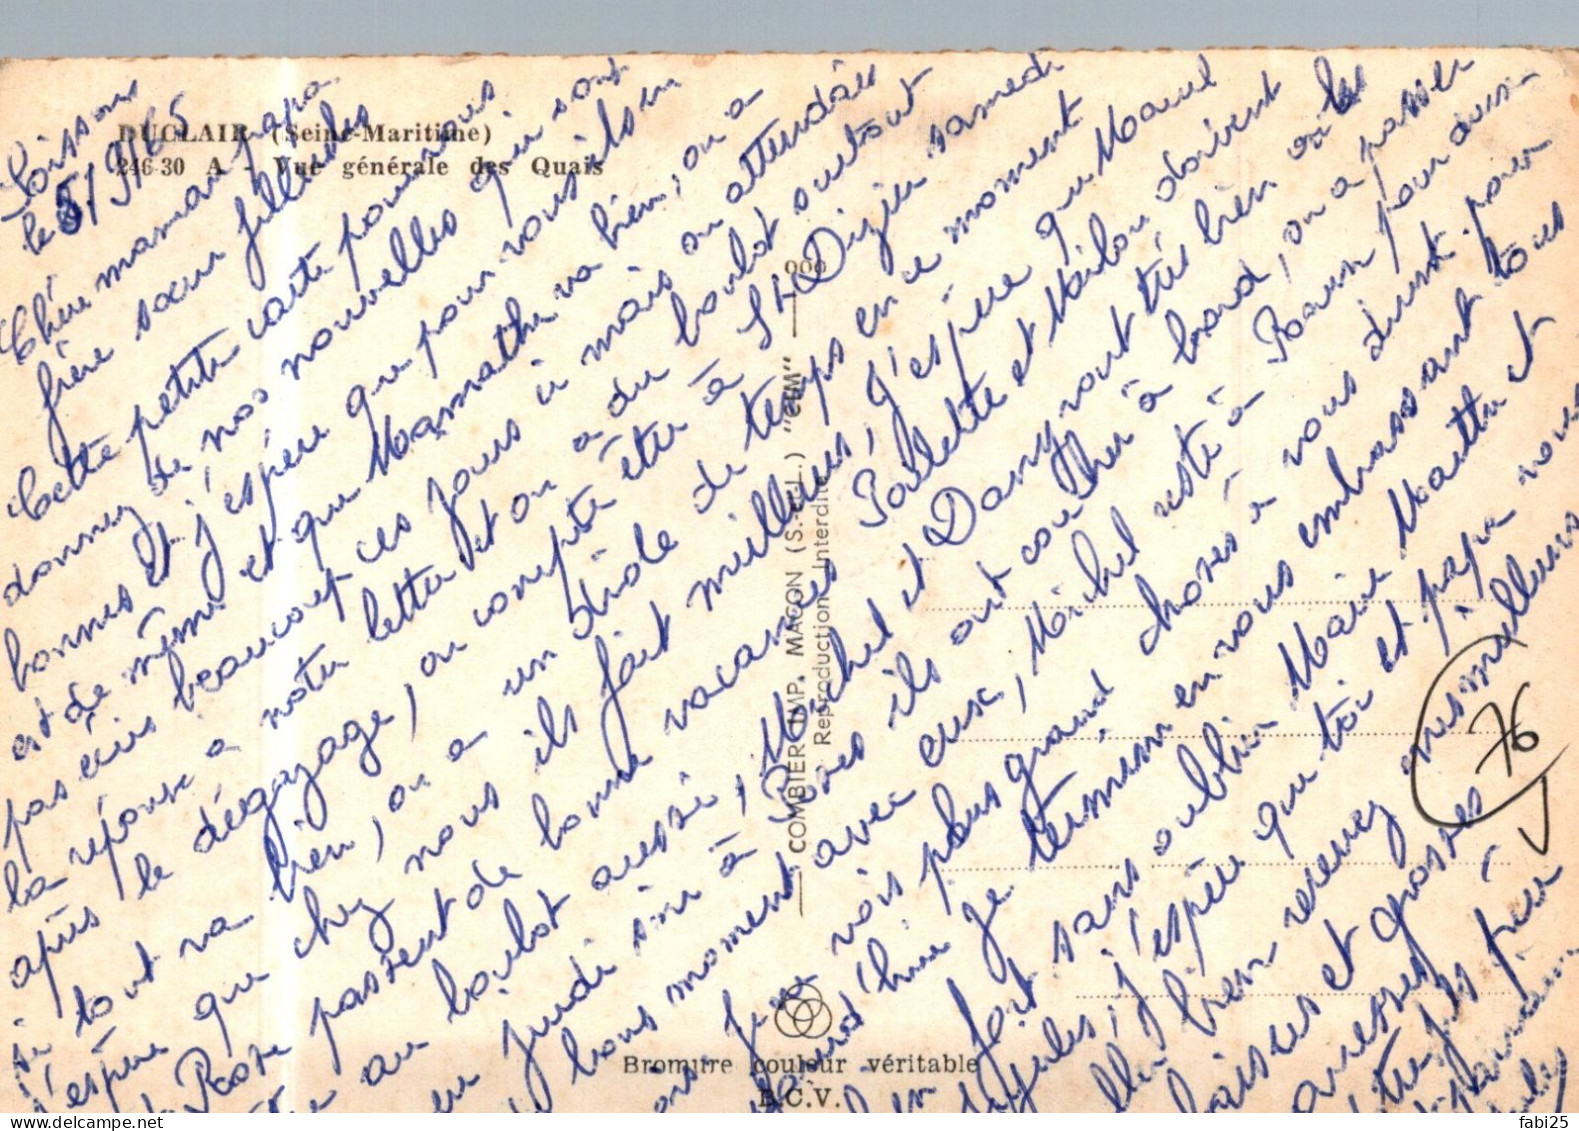 DUCLAIR (Seine-Maritime)
246-30 A - Vue générale des Quais
Soissons
le 5/9/65
Chère maman papa
frère sœur filleules
Cette petite carte pour vous
donnez de nos nouvelles qui sont
bonnes et j'espère que pour vous ils en
est de même et que Mamathe va bien, on a
pas écris beaucoup ces jours ci mais on attendais
la réponse a notre lettre et on a du boulot surtout
après le dégazage, on compte être à St Dizier samedi
si tout va bien, on a un drôle de temps en ce moment
j'espère que chez vous ils fait meilleurs, j'espère que Maud
Rose passent de bonne vacances Paulette et Milou doivent
être au boulot aussi, Michel et Dany vont très bien on les
vu jeudi soir à Paris ils ont coucher à bord, on a passer
bons moment avec eux, Michel resté à Rouen pour
vois plus grand choses à vous dire pour
aujourd'hui je termine en vous embrassant tous
bien fort sans oublier Marie Marthe et
filleules, j'espère que toi et papa vous
bien recevez mes meilleurs
baisers et grosses
caresses
votre fils frère
76
000
COMBIER IMP. MACON (S.-et-L.) "CIM"
Reproduction Interdite
Bromure couleur véritable
B.C.V.
fabi25